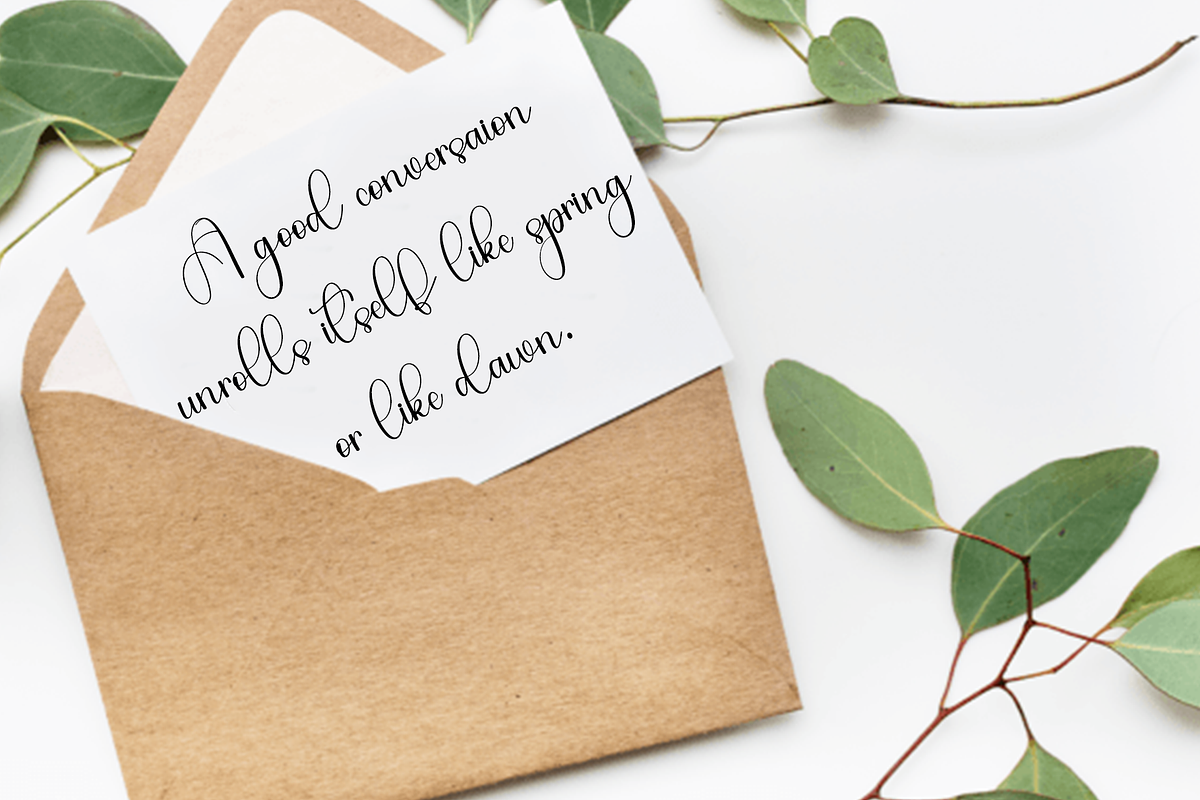 A good conversaion
unrolls itself like spring
or like dawn.